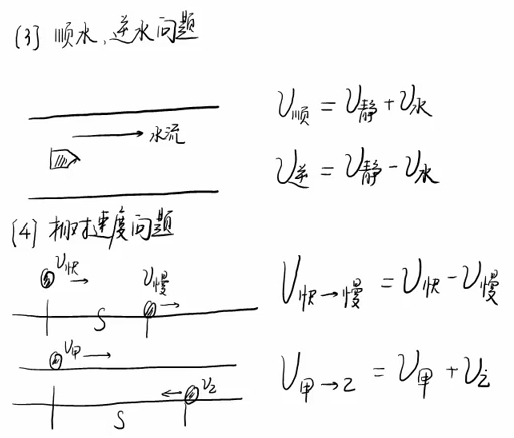 (3) 顺水、逆水问题
水流
V顺 = V静 + V水
V逆 = V静 - V水
(4) 相对速度问题
V快
V慢
S
V快→慢 = V快 - V慢
V甲
V乙
S
V甲→乙 = V甲 + V乙